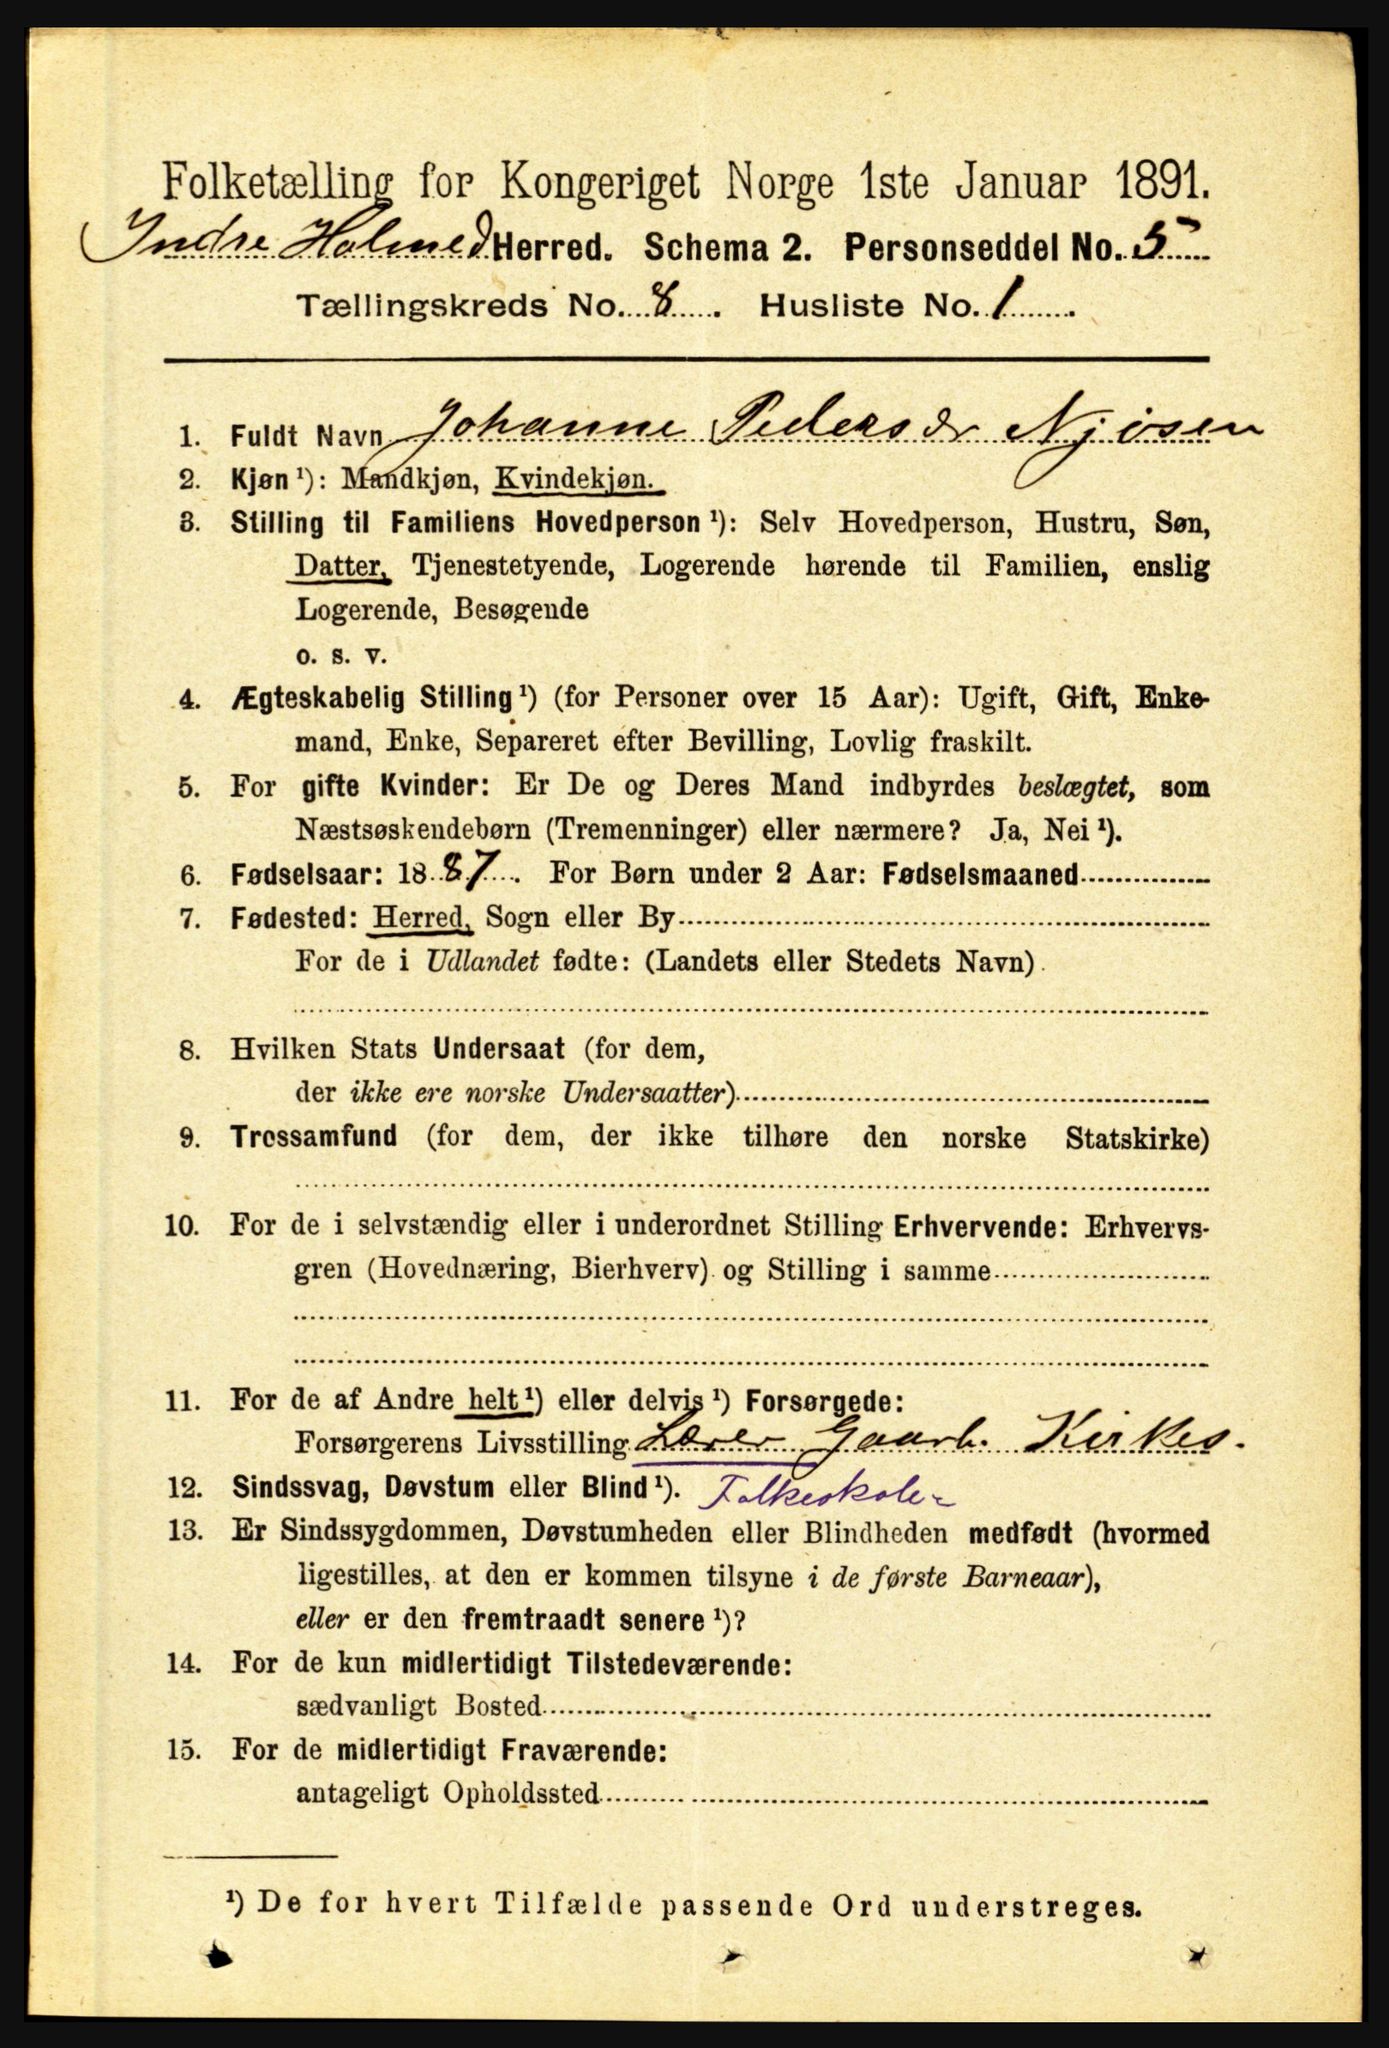 Folketælling for Kongeriget Norge 1ste Januar 1891.
Indre Holmed Herred. Schema 2. Personseddel No. 5
Tællingskreds No. 8. Husliste No. 1.
1. Fuldt Navn Johanne Pedersdr Njøsen
2. Kjøn ¹): Mandkjøn, Kvindekjøn.
3. Stilling til Familiens Hovedperson ¹): Selv Hovedperson, Hustru, Søn,
Datter, Tjenestetyende, Logerende hørende til Familien, enslig
Logerende, Besøgende
o. s. v.
4. Ægteskabelig Stilling ¹) (for Personer over 15 Aar): Ugift, Gift, Enke-
mand, Enke, Separeret efter Bevilling, Lovlig fraskilt.
5. For gifte Kvinder: Er De og Deres Mand indbyrdes beslægtet, som
Næstsøskendebørn (Tremenninger) eller nærmere? Ja, Nei ¹).
6. Fødselsaar: 1887. For Børn under 2 Aar: Fødselsmaaned
7. Fødested: Herred, Sogn eller By
For de i Udlandet fødte: (Landets eller Stedets Navn)
8. Hvilken Stats Undersaat (for dem,
der ikke ere norske Undersaatter)
9. Trossamfund (for dem, der ikke tilhøre den norske Statskirke)
10. For de i selvstændig eller i underordnet Stilling Erhvervende: Erhvervs-
gren (Hovednæring, Bierhverv) og Stilling i samme
11. For de af Andre helt ¹) eller delvis ¹) Forsørgede:
Forsørgerens Livsstilling Lærer Gaarb. Kirkes.
12. Sindssvag, Døvstum eller Blind ¹). Folkeskole-
13. Er Sindssygdommen, Døvstumheden eller Blindheden medfødt (hvormed
ligestilles, at den er kommen tilsyne i de første Barneaar),
eller er den fremtraadt senere ¹)?
14. For de kun midlertidigt Tilstedeværende:
sædvanligt Bosted
15. For de midlertidigt Fraværende:
antageligt Opholdssted
¹) De for hvert Tilfælde passende Ord understreges.